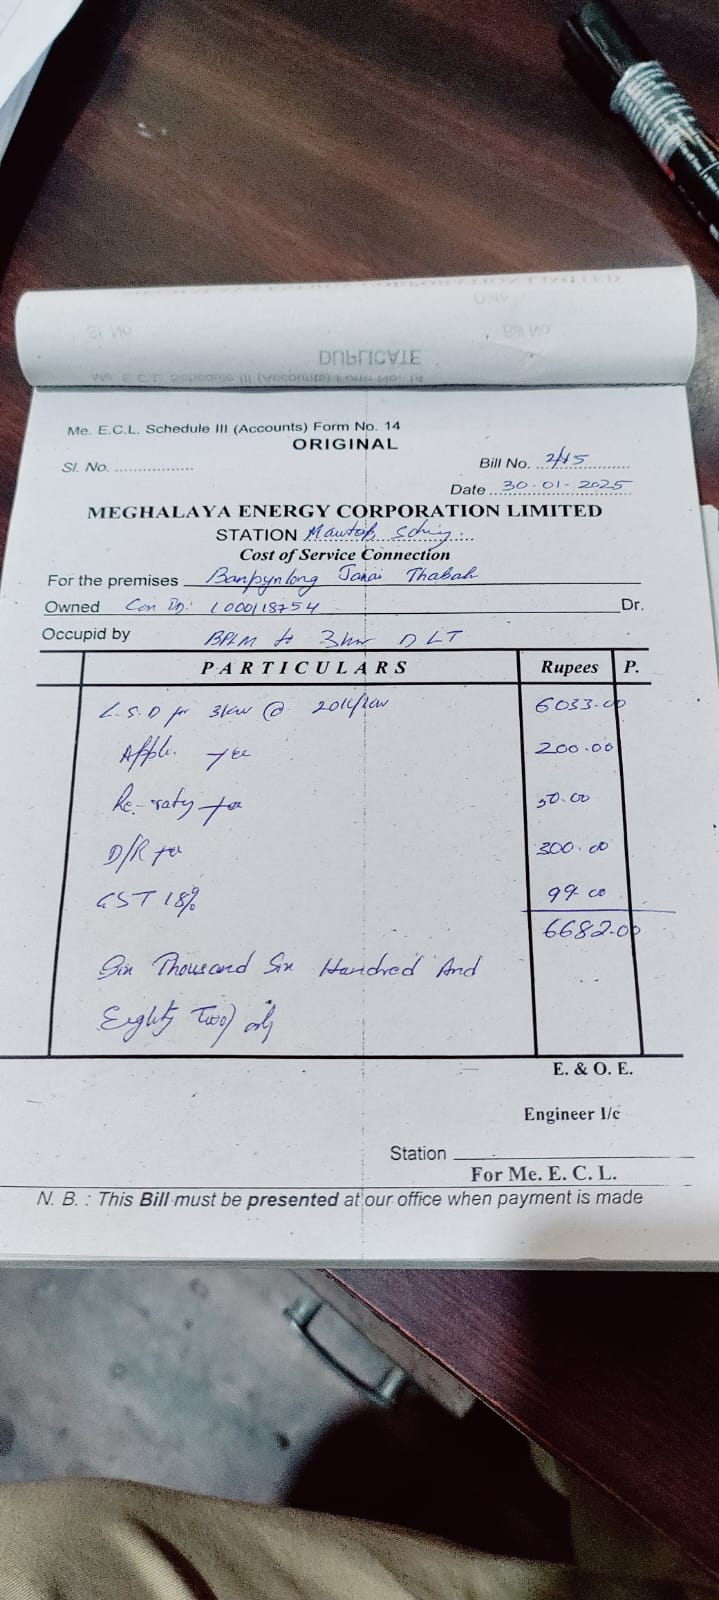 DUPLICATE
Me. E.C.L. Schedule III (Accounts) Form No. 14
ORIGINAL
Sl. No. ................
Bill No. 2/15
Date 30-01-2025
MEGHALAYA ENERGY CORPORATION LIMITED
STATION
Cost of Service Connection
For the premises Banpynlong Janai Thabah
Owned Con ID: 1000118754 Dr.
Occupid by to 3kw DLT
PARTICULARS Rupees P.
L.S.D for 3kw @ 6033.00
Appli. fee 200.00
fee 50.00
D/R fee 300.00
GST 18% 99.00
6682.00
Six Thousand Six Hundred And
Eighty Two) only
E. & O. E.
Engineer I/c
Station
For Me. E. C. L.
N. B. : This Bill must be presented at our office when payment is made